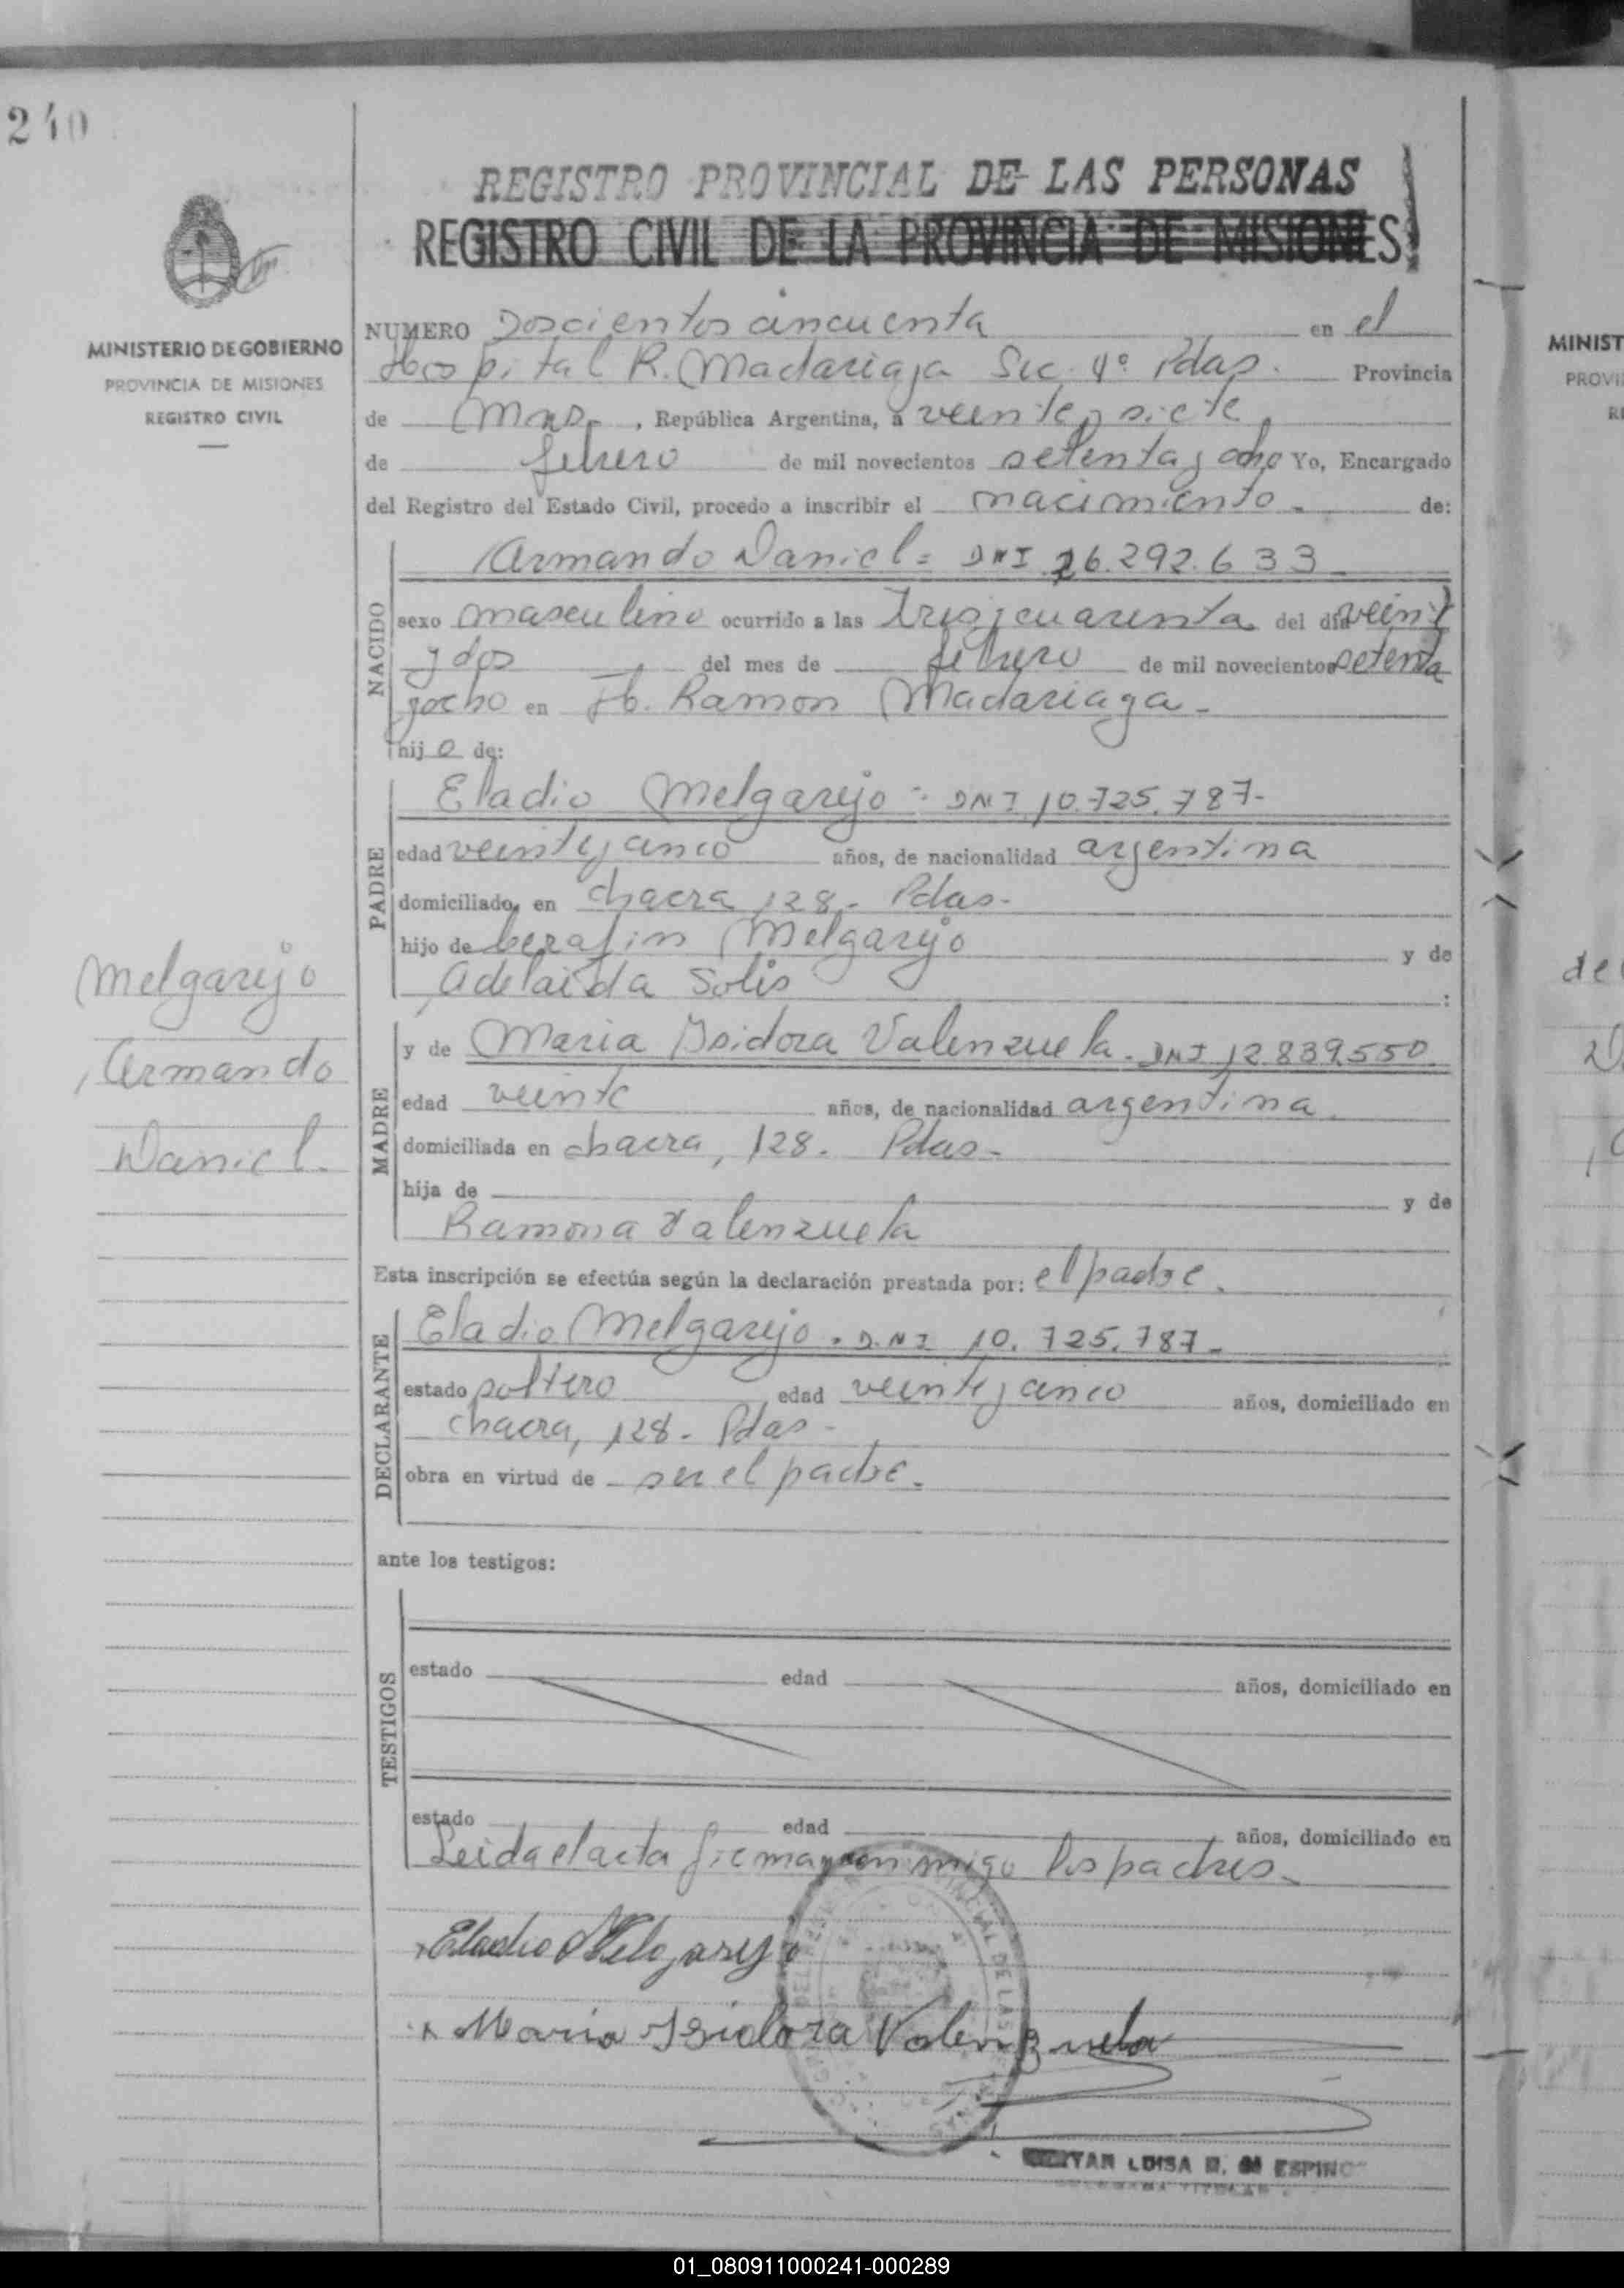 240
REGISTRO PROVINCIAL DE LAS PERSONAS
REGISTRO CIVIL DE LA PROVINCIA DE MISIONES
MINISTERIO DE GOBIERNO
PROVINCIA DE MISIONES
REGISTRO CIVIL
NUMERO Doscientos cincuenta en el
Hospital R. Madariaga Sec. 4º Pdas. Provincia
de Mnes., República Argentina, a veinte y siete
de febrero de mil novecientos setenta y ocho Yo, Encargado
del Registro del Estado Civil, procedo a inscribir el nacimiento de:
NACIDO
Armando Daniel= DNI 26.292.633
sexo masculino ocurrido a las tres y cuarenta del día veint
y dos del mes de febrero de mil novecientos setenta
y ocho en H. Ramon Madariaga-
hijo de:
PADRE
Eladio Melgarejo - DNI 10.725.787-
edad veinte y cinco años, de nacionalidad argentina
domiciliado, en chacra 128- Pdas-
hijo de Cerafin Melgarejo y de
Adelaida Solis :
MADRE
y de Maria Isidora Valenzuela- DNI 12.839.550
edad veinte años, de nacionalidad argentina
domiciliada en chacra, 128. Pdas-
hija de y de
Ramona Valenzuela
Esta inscripción se efectúa según la declaración prestada por: el padre.
DECLARANTE
Eladio Melgarejo. D.N.I 10.725.787-
estado soltero edad veinte y cinco años, domiciliado en
chacra, 128- Pdas-
obra en virtud de ser el padre.
Melgarejo
Armando
Daniel.
ante los testigos:
TESTIGOS
estado edad años, domiciliado en
estado edad años, domiciliado en
Leida el acta firman conmigo los padres-
Eladio Melgarejo
Maria Isidora Valenzuela
LUISA ESPINO
MINIST
PROVI
R
de
01_080911000241-000289